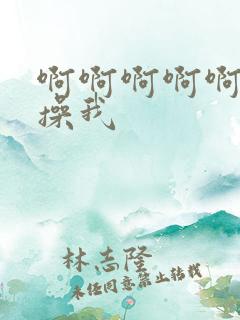 啊啊啊啊啊
操我
林志隆
未任同意禁止转载